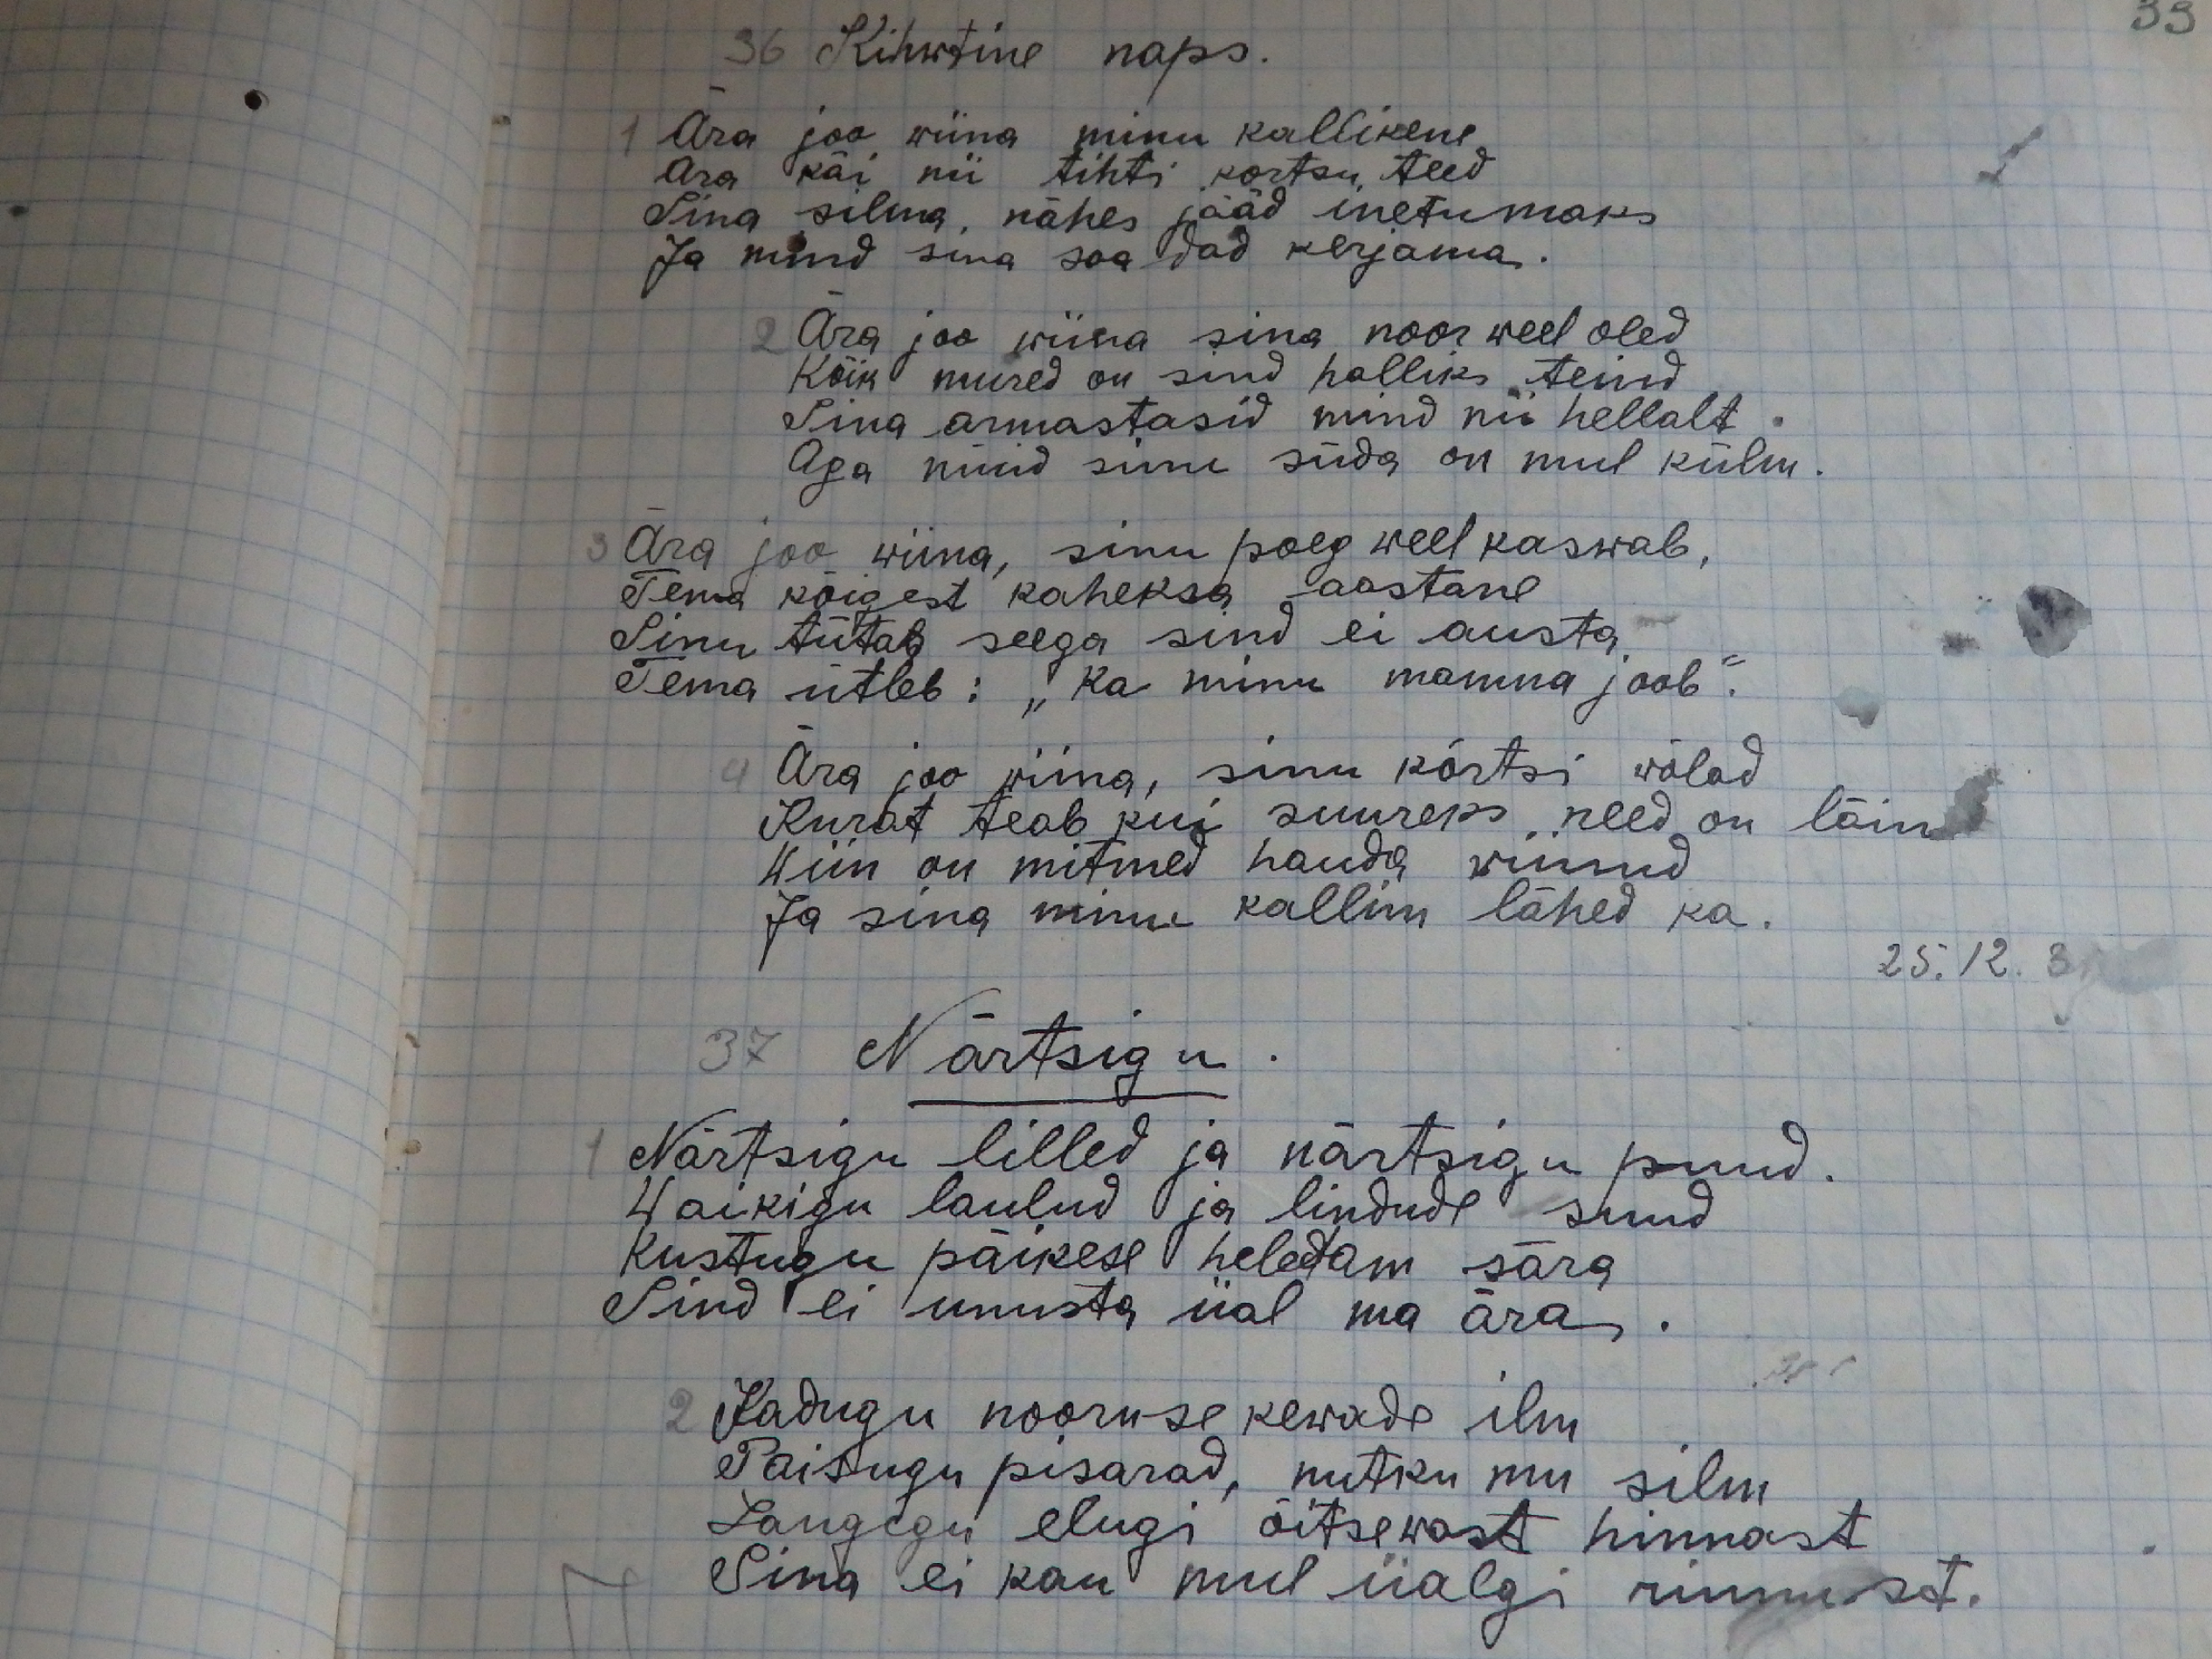 33
36 Kihwtine naps.
1 Ära joo wiina minu kallikene
Ara käi nii tihti kortsu teed
Sina silma nähes jääd inetumaks
Ja mind sina saadad kerjama.
2 Ära joo wiina sina noor weel oled
Kõik mured on sind halliks teind
Sina armastasid mind nii hellalt.
Aga nüüd sinu süda on mul külm.
3 Ära joo wiina, sinu poeg weel kaswab,
Tema kõigest kaheksa aastane
Sinu tütab seega sind ei austa
Tema ütleb: „Ka minu mamma joob".
4 Ära joo wiina, sinu kõrtsi wõlad
Kurat teab kui suureks need on läin
Wiin on mitmed hauda wiinud
Ja sina minu kallim lähed ka.
25. 12. 3
37 Närtsigu.
1 Närtsigu lilled ja närtsigu puud.
Waikigu laulud ja lindude suud
Kustugu päikese heledam sära
Sind ei unusta iial ma ära.
2 Kadugu nooruse kewade ilm
Paisugu pisarad, nutku mu silm
Langegu elugi õitsewast hinnast
Sina ei kau mul iialgi rinnust.